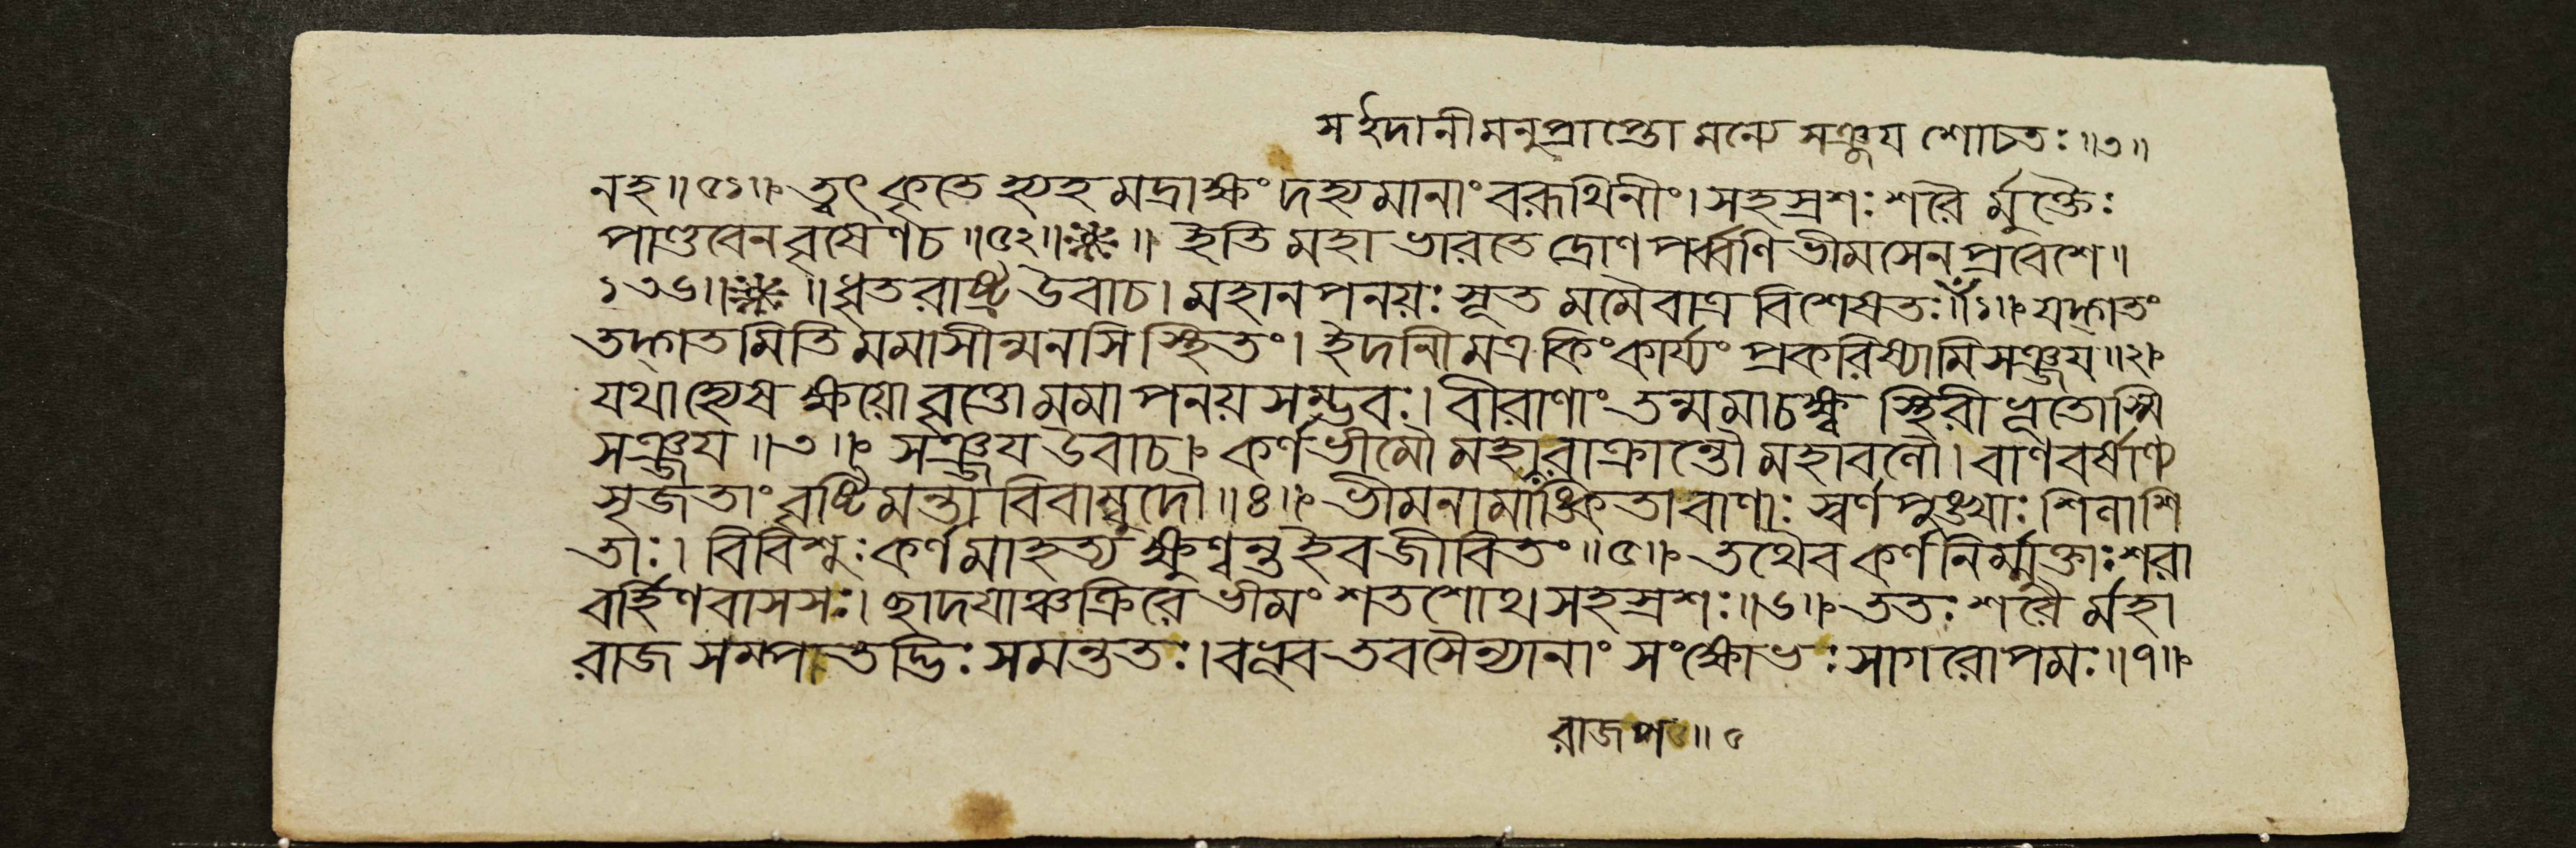 স ইদানীমনুপ্রাপ্তো মন্যে সঞ্জয শোচতঃ॥৩॥
নহ॥৫১॥ ত্বৎকৃতে হ্যহমদ্রাক্ষং দহ্যমানাং বরূথিনীং। সহস্রশঃ শরৈর্মুক্তৈঃ
পাণ্ডবেন বৃষেণ চ॥৫২॥ ইতি মহাভারতে দ্রোণপর্ব্বণি ভীমসেনপ্রবেশে॥
১৩৬॥ ॥ধৃতরাষ্ট্র উবাচ। মহানপনয়ঃ সূত মমৈবাত্র বিশেষতঃ॥১॥ যদ্গতং
তদ্গতমিতি মমাসীন্মনসি স্থিতং। ইদানীমত্র কিং কার্য্যং প্রকরিষ্যামি সঞ্জয॥২॥
যথা হ্যেষ ক্ষয়ো বৃত্তো মমাপনয়সম্ভবঃ। বীরাণাং তন্মমাচক্ষ্ব স্থিরীভূতোস্মি
সঞ্জয॥৩॥ সঞ্জয উবাচ। কর্ণভীমৌ মহারাজ ক্রান্তৌ মহাবলৌ। বাণবর্ষাণ্য
সৃজতাং বৃষ্টিমন্তাবিবাম্বুদৌ॥৪॥ ভীমনামাঙ্কিতা বাণাঃ স্বর্ণপুঙ্খাঃ শিলাশি
তাঃ। বিবিশুঃ কর্ণমাহত্য ক্ষুণ্বন্ত ইব জীবিতং॥৫॥ তথৈব কর্ণনির্ম্মুক্তাঃ শরা
বর্হিণবাসসঃ। ছাদযাঞ্চক্রিরে ভীমং শতশোথ সহস্রশঃ॥৬॥ ততঃ শরৈর্মহা
রাজ সম্পাতদ্ভিঃ সমন্ততঃ। বভূব তব সৈন্যানাং সংক্ষোভঃ সাগরোপমঃ॥৭॥
রাজ প॥৫